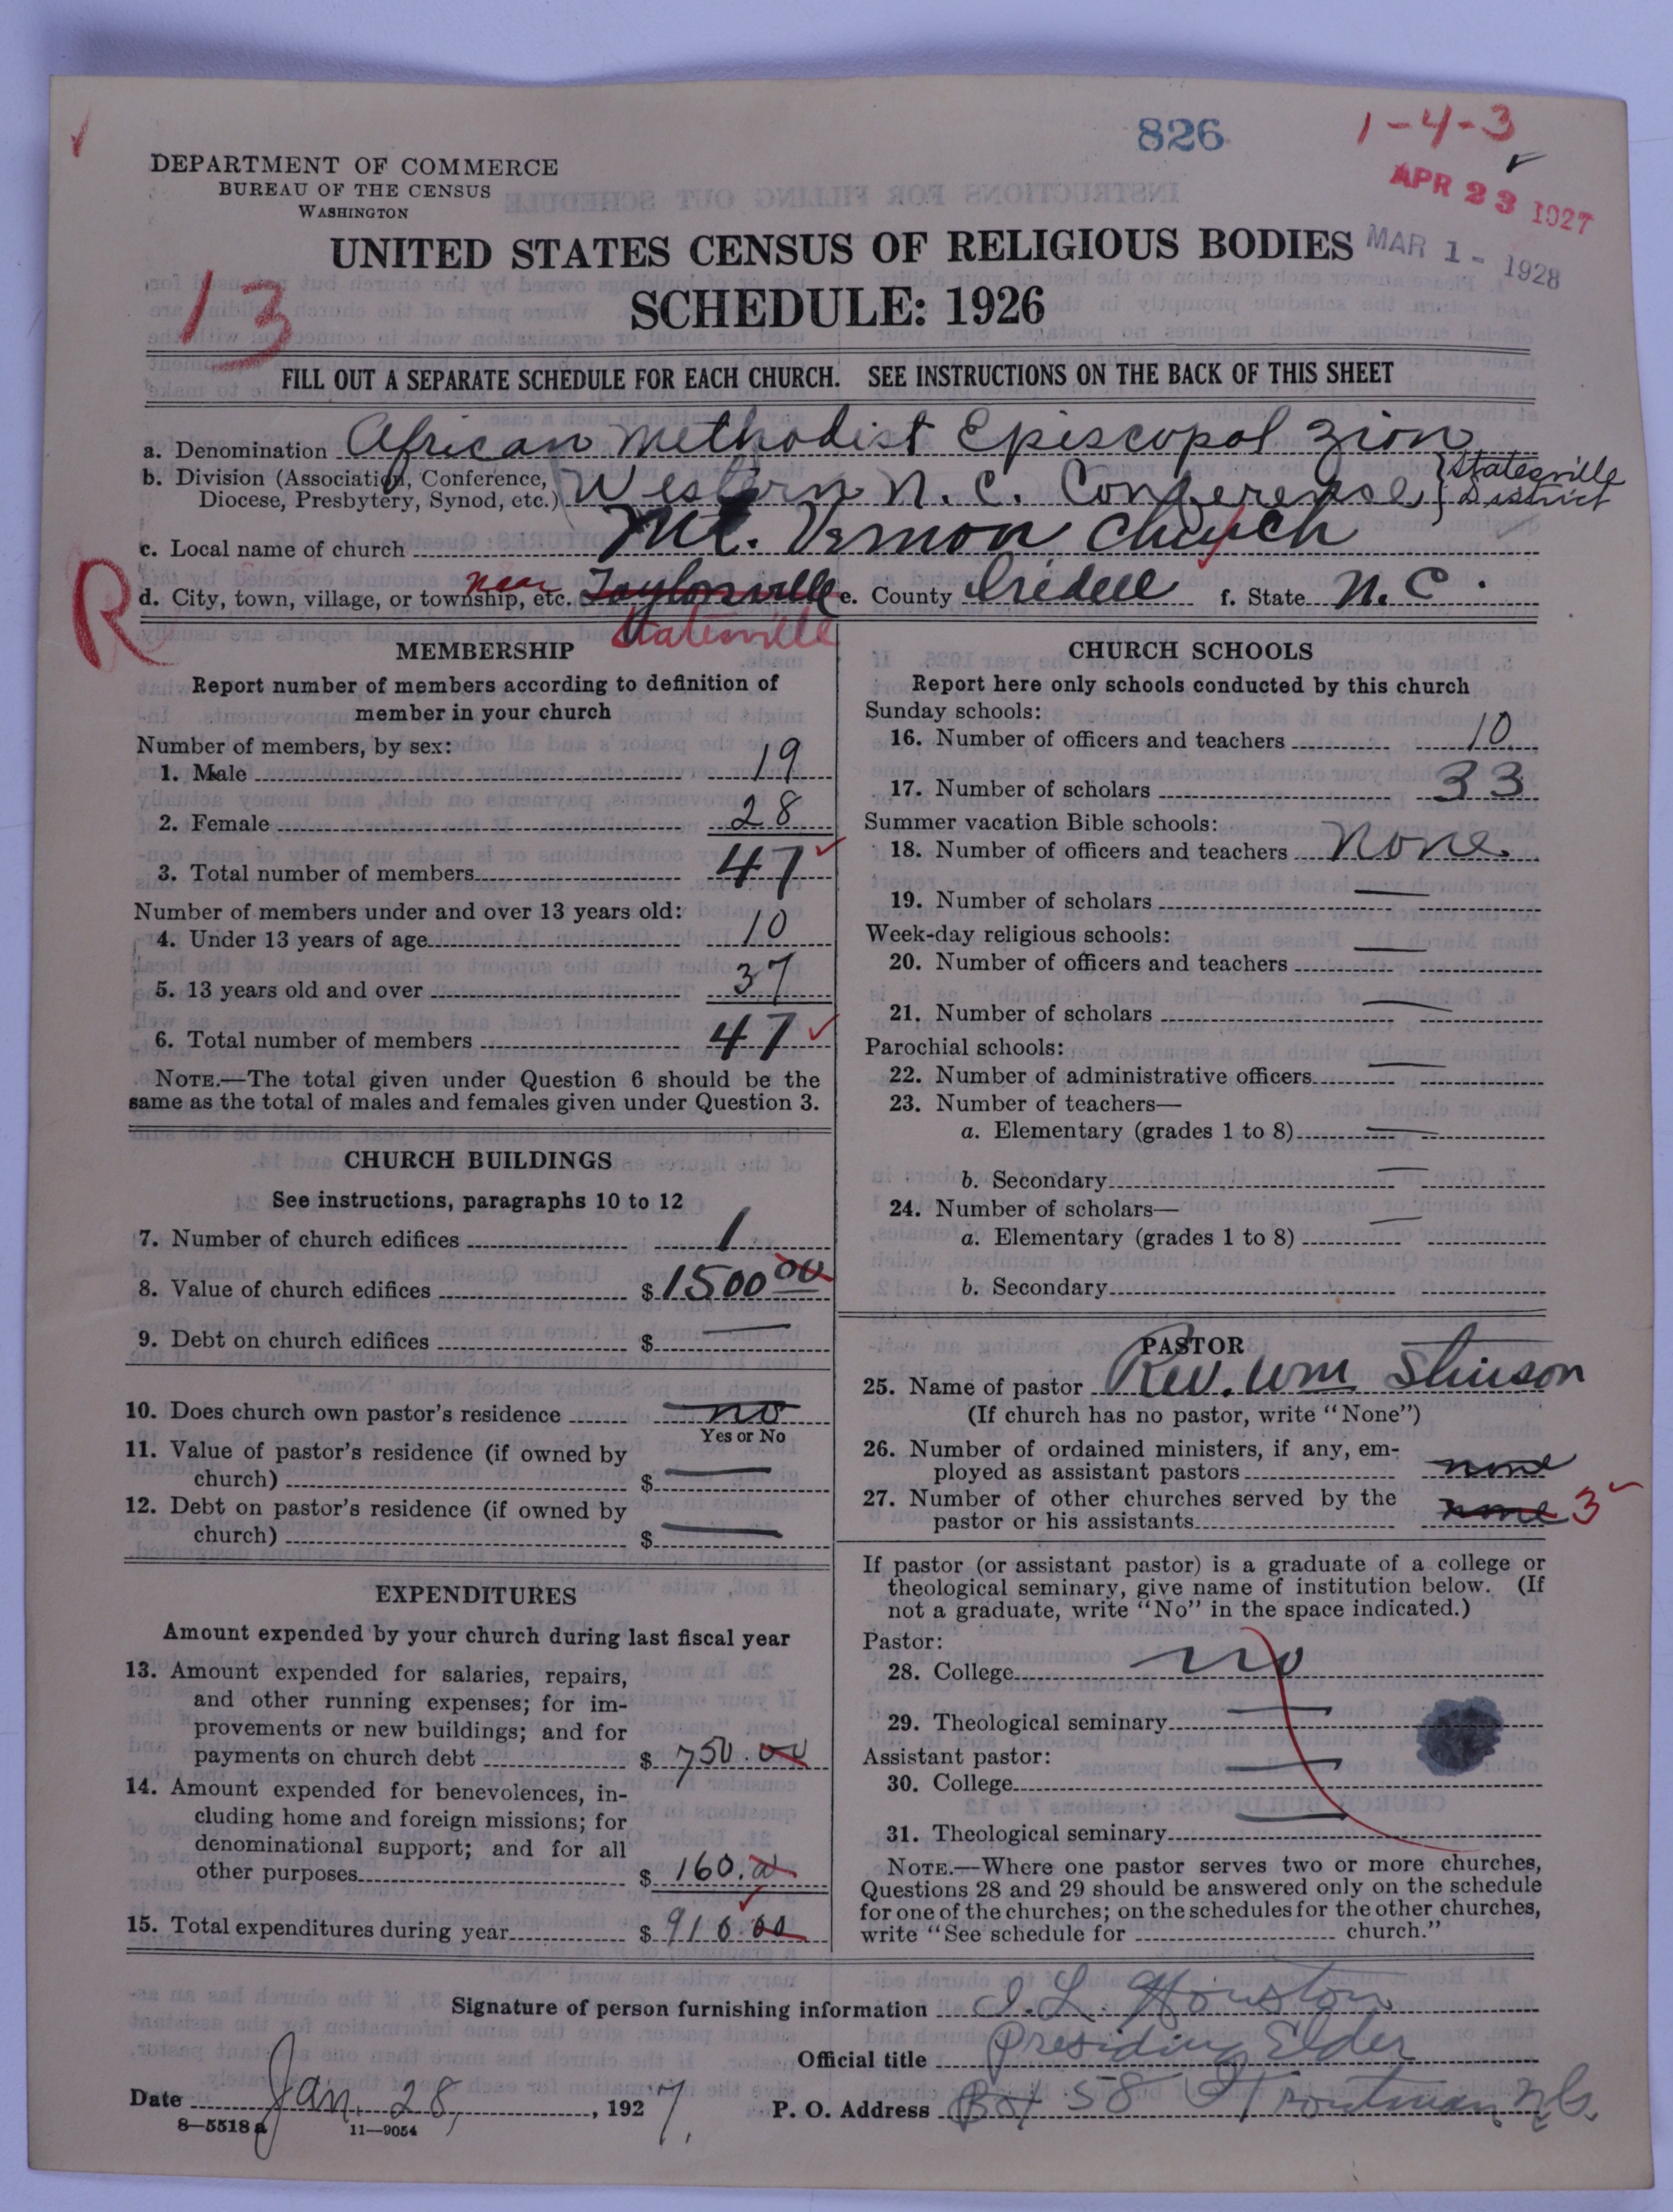 826
1-4-3
APR 23 1927
MAR 1 - 1928
DEPARTMENT OF COMMERCE
BUREAU OF THE CENSUS
WASHINGTON
UNITED STATES CENSUS OF RELIGIOUS BODIES
SCHEDULE: 1926
13
FILL OUT A SEPARATE SCHEDULE FOR EACH CHURCH. SEE INSTRUCTIONS ON THE BACK OF THIS SHEET
a. Denomination African Methodist Episcopal Zion
b. Division (Association, Conference, Diocese, Presbytery, Synod, etc.) Western N. C. Conference } Statesville District
c. Local name of church Mt. Vernon Church
R
d. City, town, village, or township, etc. near Taylorsville e. County Iredell f. State N. C.
Statesville
MEMBERSHIP
Report number of members according to definition of
member in your church
Number of members, by sex:
1. Male 19
2. Female 28
3. Total number of members 47
Number of members under and over 13 years old:
4. Under 13 years of age 10
5. 13 years old and over 37
6. Total number of members 47
NOTE.—The total given under Question 6 should be the
same as the total of males and females given under Question 3.
CHURCH BUILDINGS
See instructions, paragraphs 10 to 12
7. Number of church edifices 1
8. Value of church edifices $ 1500 00
9. Debt on church edifices $ —
10. Does church own pastor's residence no
Yes or No
11. Value of pastor's residence (if owned by
church) $ —
12. Debt on pastor's residence (if owned by
church) $ —
EXPENDITURES
Amount expended by your church during last fiscal year
13. Amount expended for salaries, repairs,
and other running expenses; for im-
provements or new buildings; and for
payments on church debt $ 750.00
14. Amount expended for benevolences, in-
cluding home and foreign missions; for
denominational support; and for all
other purposes $ 160.00
15. Total expenditures during year $ 910.00
CHURCH SCHOOLS
Report here only schools conducted by this church
Sunday schools:
16. Number of officers and teachers 10
17. Number of scholars 33
Summer vacation Bible schools:
18. Number of officers and teachers None.
19. Number of scholars —
Week-day religious schools:
20. Number of officers and teachers —
21. Number of scholars —
Parochial schools:
22. Number of administrative officers —
23. Number of teachers—
a. Elementary (grades 1 to 8) —
b. Secondary —
24. Number of scholars—
a. Elementary (grades 1 to 8) —
b. Secondary
PASTOR
25. Name of pastor Rev. Wm Stinson
(If church has no pastor, write "None")
26. Number of ordained ministers, if any, em-
ployed as assistant pastors none
27. Number of other churches served by the
pastor or his assistants none 3
If pastor (or assistant pastor) is a graduate of a college or
theological seminary, give name of institution below. (If
not a graduate, write "No" in the space indicated.)
Pastor:
28. College no
29. Theological seminary —
Assistant pastor:
30. College —
31. Theological seminary —
NOTE.—Where one pastor serves two or more churches,
Questions 28 and 29 should be answered only on the schedule
for one of the churches; on the schedules for the other churches,
write "See schedule for church."
Signature of person furnishing information I. L. Houston
Official title Presiding Elder
Date Jan. 28, 1927. P. O. Address Box 58 Troutman, N. C.
8—5518 a 11—9054